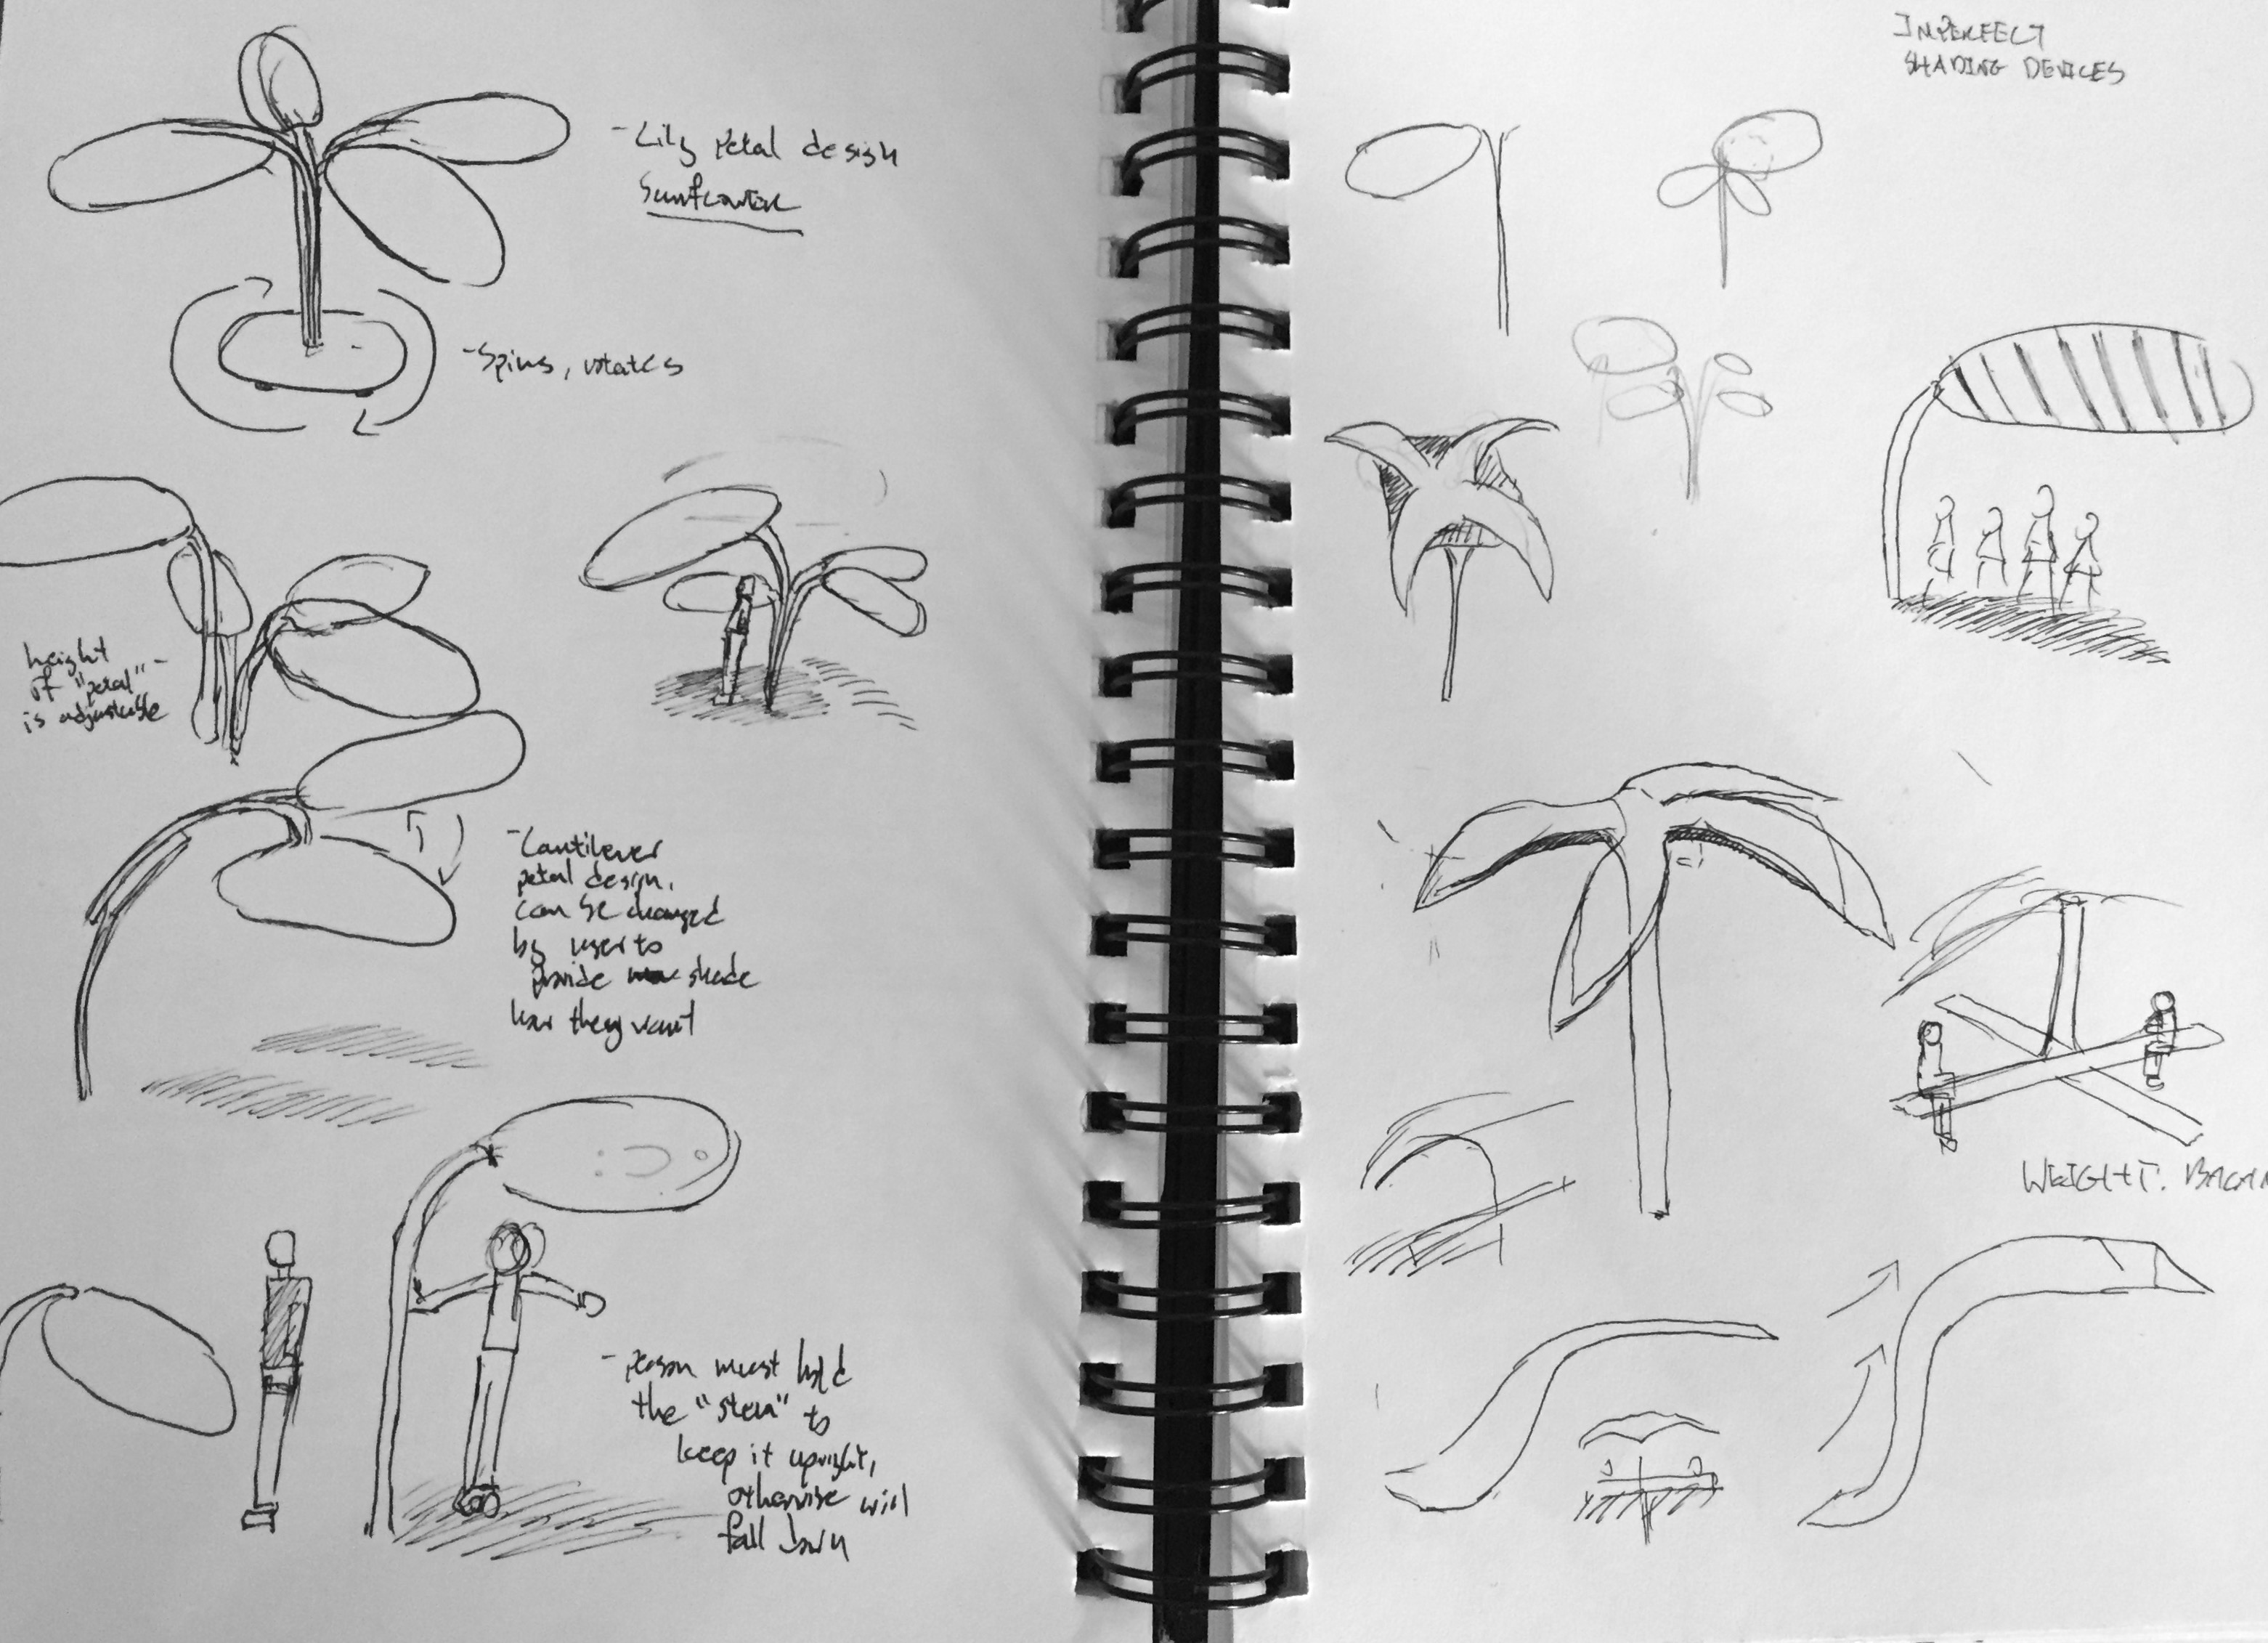 - Lily petal design
Sunflower
- Spins, rotates
height
of "petal" -
is adjustable
- Cantilever
petal design,
can be changed
by user to
provide shade
how they want
- person must hold
the "stem" to
keep it upright,
otherwise will
fall down
IMPERFECT
SHADING DEVICES
WEIGHT. BALAN